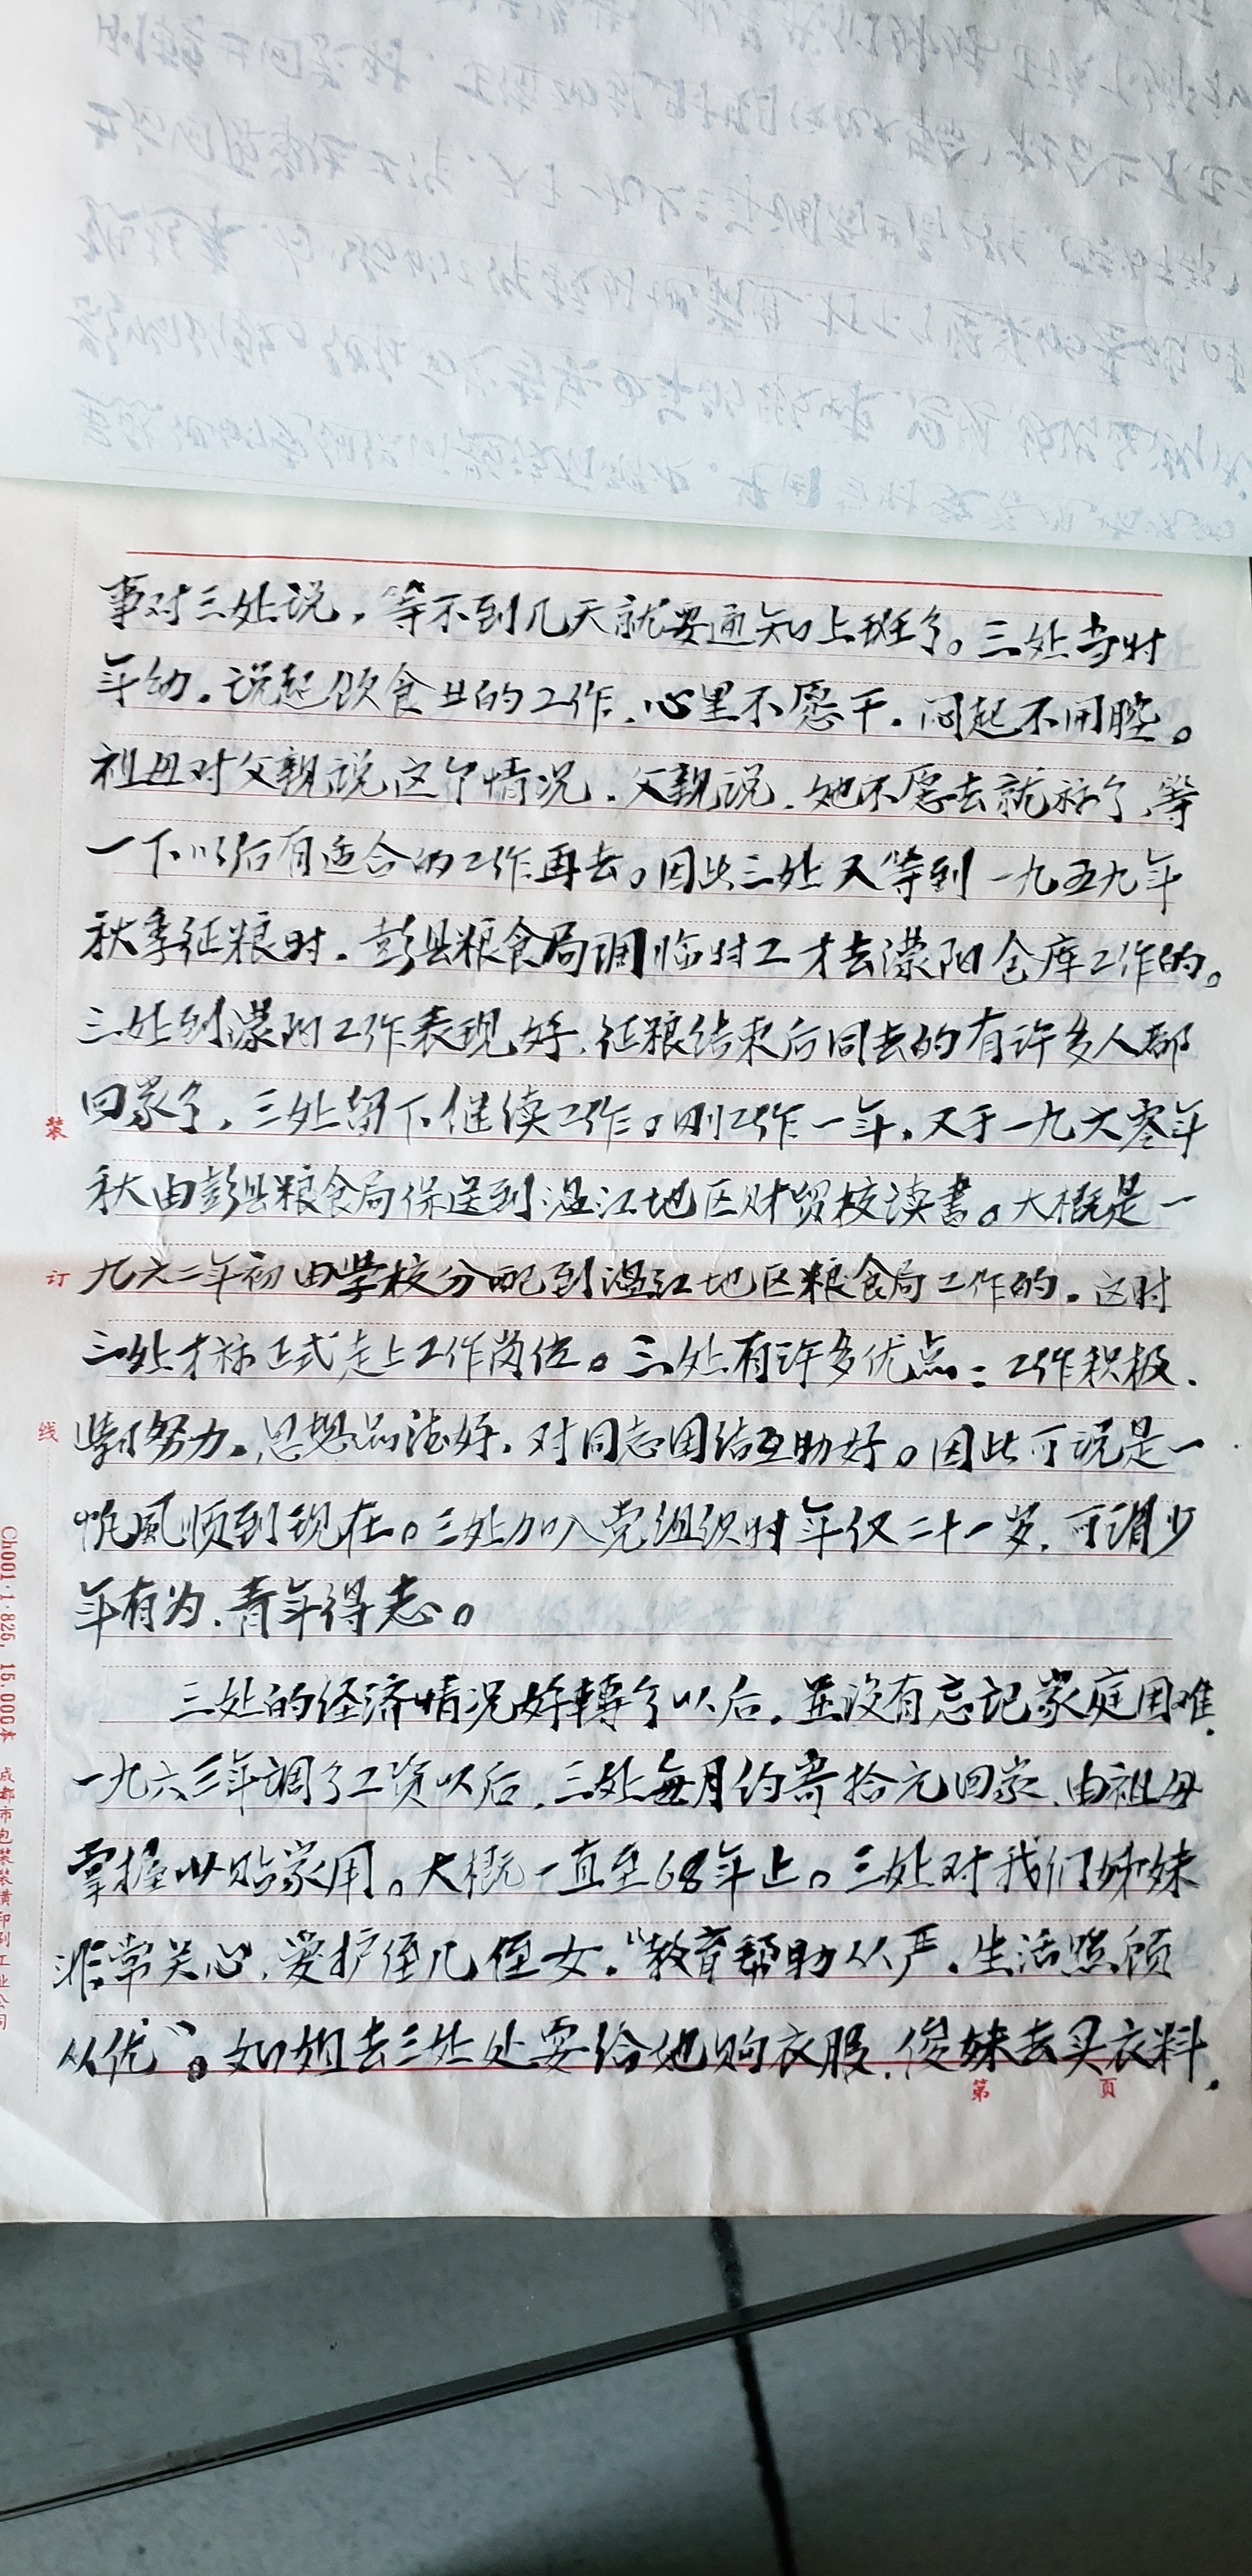 事对三处说，等不到几天就要通知上班了。三处当时
年幼，说起饮食业的工作，心里不愿干，闷起不开腔。
祖母对父亲说这个情况，父亲说，她不愿去就算了，等
一下以后有适合的工作再去。因此三处又等到一九五九年
秋季征粮时，彭县粮食局调临时工才去濛阳仓库工作的。
三处到濛阳工作表现好，征粮结束后同去的有许多人都
回家了，三处留下继续工作。刚工作一年，又于一九六零年
秋由彭县粮食局保送到温江地区财贸校读书。大概是一
九六二年初由学校分配到温江地区粮食局工作的，这时
三处才称正式走上工作岗位。三处有许多优点：工作积极，
学习努力，思想品德好，对同志团结互助好。因此可说是一
帆風顺到现在。三处加入党组织时年仅二十一岁，可谓少
年有为，青年得志。
三处的经济情况好轉了以后，并没有忘记家庭困难，
一九六三年调了工资以后，三处每月约寄拾元回家，由祖母
掌握以贴家用。大概一直至68年止。三处对我们姊妹
非常关心，爱护侄儿侄女，“教育帮助从严，生活照顾
从优”。如姐去三处处要给她购衣服，俊妹去买衣料，
装
订
线
Ch001·1·825, 15,000本 成都市包装装潢印刷工业公司
第 页